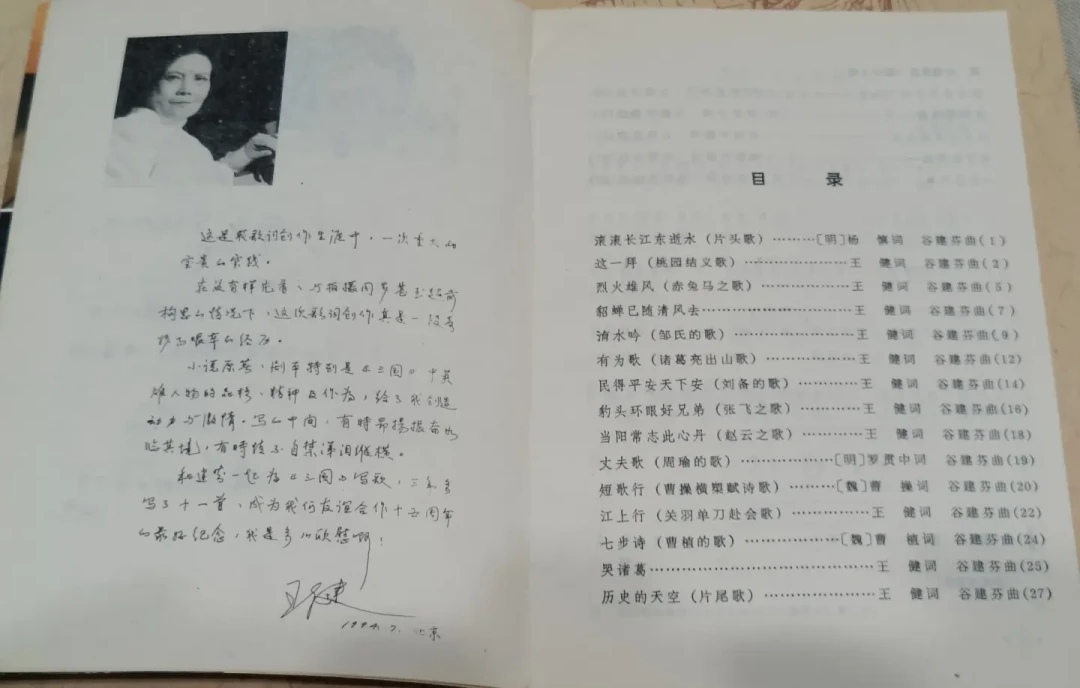 这是我歌词创作生涯中，一次重大的
宝贵的实践。
在没有样片看、与拍摄同步甚至超前
构思的情况下，这次歌词创作真是一段奇
特而艰辛的经历。
小说原著、剧本特别是《三国》中英
雄人物的品格、精神及作为，给了我创造
动力与激情。写的中间，有時昂揚振奋如
临其境，有時情不自禁涕泪纵横。
和建芬一起为《三国》写歌，三年多
写了十一首，成为我们友谊合作十五周年
的最好纪念，我是多么欣慰啊！
王健
1994.7. 北京
目 录
滚滚长江东逝水（片头歌）………〔明〕杨 慎词 谷建芬曲(1)
这一拜（桃园结义歌）…………………王 健词 谷建芬曲(2)
烈火雄风（赤兔马之歌）………………王 健词 谷建芬曲(5)
貂蝉已随清风去…………………………王 健词 谷建芬曲(7)
淯水吟（邹氏的歌）……………………王 健词 谷建芬曲(9)
有为歌（诸葛亮出山歌）………………王 健词 谷建芬曲(12)
民得平安天下安（刘备的歌）…………王 健词 谷建芬曲(14)
豹头环眼好兄弟（张飞之歌）…………王 健词 谷建芬曲(16)
当阳常志此心丹（赵云之歌）…………王 健词 谷建芬曲(18)
丈夫歌（周瑜的歌）……………〔明〕罗贯中词 谷建芬曲(19)
短歌行（曹操横槊赋诗歌）………〔魏〕曹 操词 谷建芬曲(20)
江上行（关羽单刀赴会歌）……………王 健词 谷建芬曲(22)
七步诗（曹植的歌）………………〔魏〕曹 植词 谷建芬曲(24)
哭诸葛……………………………………王 健词 谷建芬曲(25)
历史的天空（片尾歌）…………………王 健词 谷建芬曲(27)